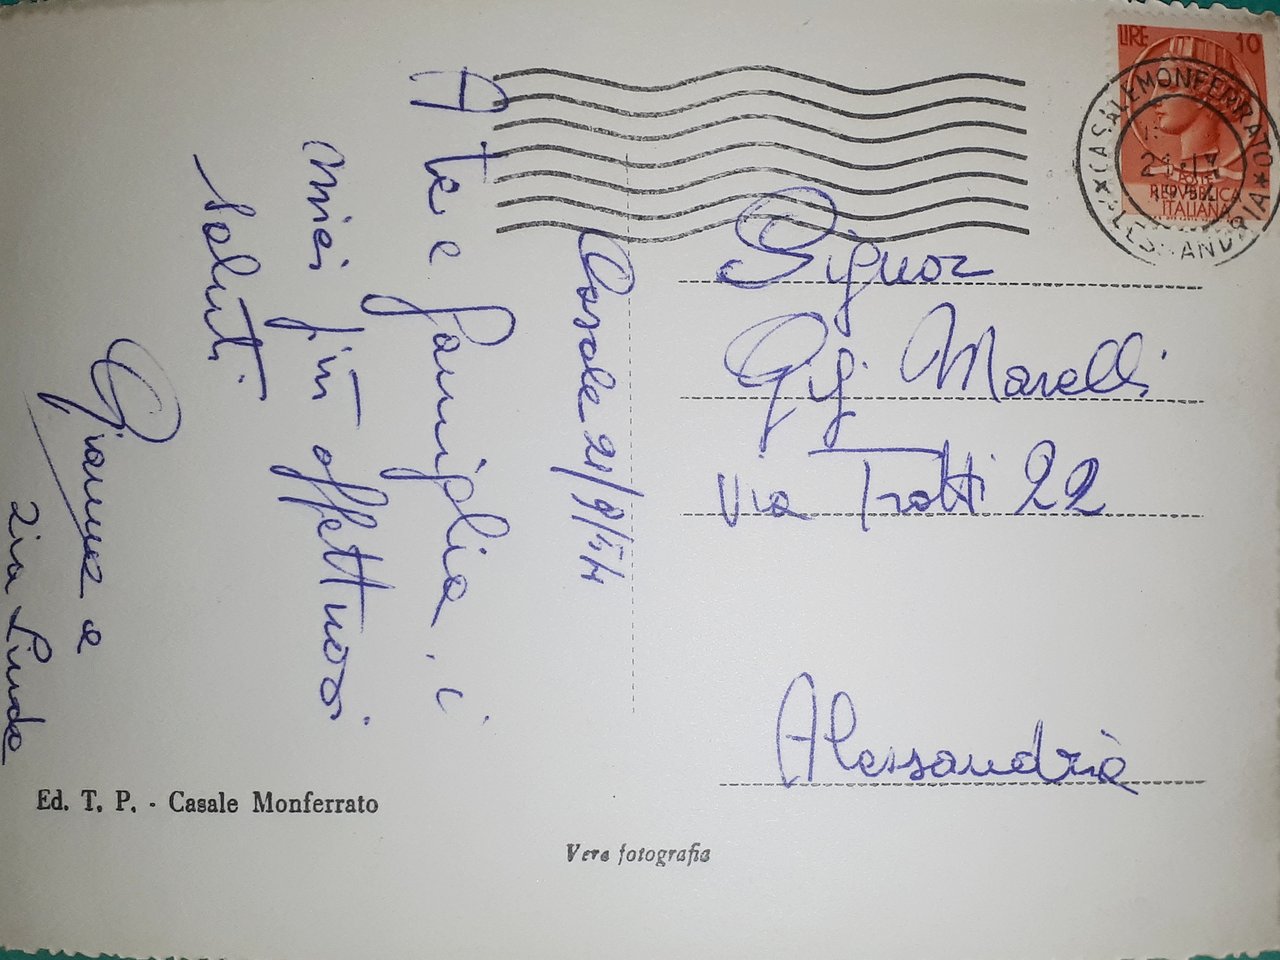 LIRE 10
CASALE MONFERRATO
ALESSANDRIA
REPVBBLICA
ITALIANA
Casale 21/9/54
A te e famiglia i
miei più affettuosi
saluti
Gianna e
zia Linda
Signor
Gigi Marelli
Via Trotti 22
Alessandria
Ed. T. P. - Casale Monferrato
Vera fotografia